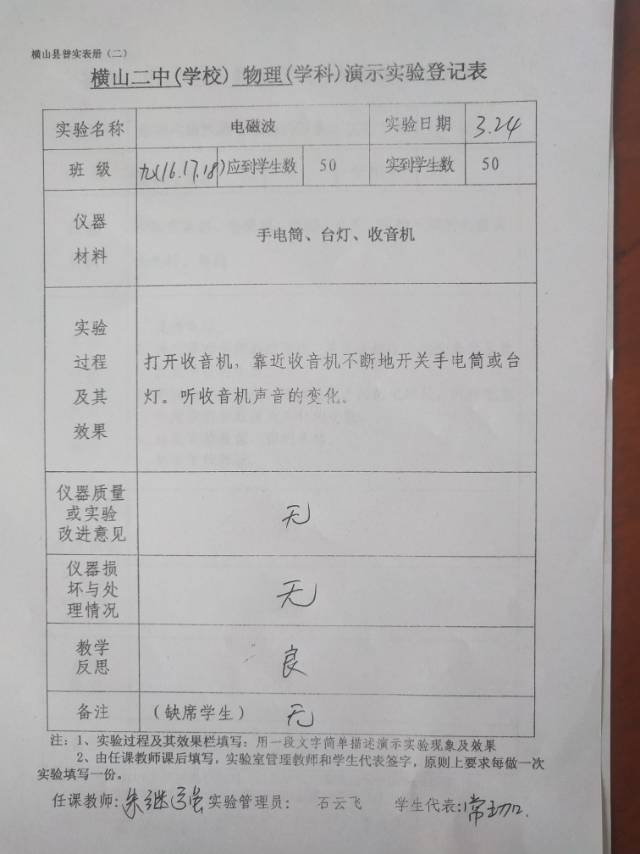 横山县普实表册（二）
横山二中(学校) 物理(学科)演示实验登记表
实验名称 电磁波 实验日期 3.24
班 级 九(16.17.18) 应到学生数 50 实到学生数 50
仪器
材料
手电筒、台灯、收音机
实验
过程
及其
效果
打开收音机，靠近收音机不断地开关手电筒或台
灯。听收音机声音的变化。
仪器质量
或实验
改进意见
无
仪器损
坏与处
理情况
无
教学
反思
良
备注 （缺席学生） 无
注：1、实验过程及其效果栏填写：用一段文字简单描述演示实验现象及效果
2、由任课教师课后填写，实验室管理教师和学生代表签字，原则上要求每做一次
实验填写一份。
任课教师: 朱继 实验管理员： 石云飞 学生代表: 常